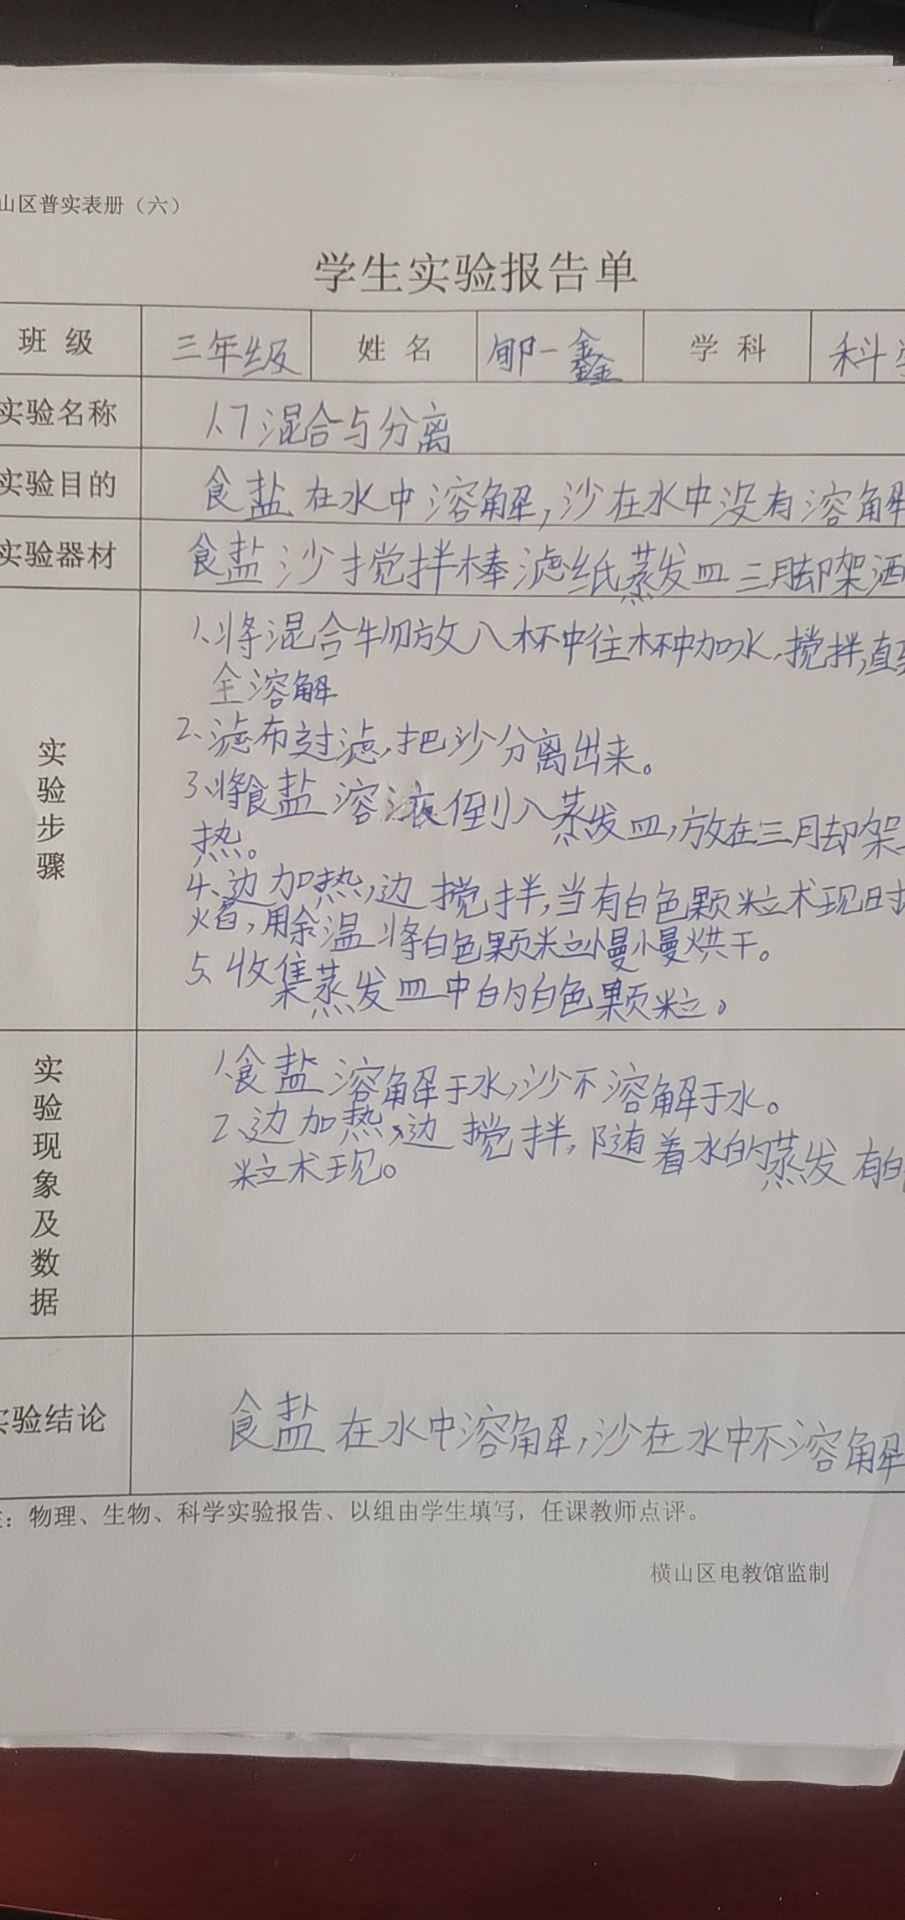 山区普实表册（六）
学生实验报告单
班 级 三年级 姓 名 郇一鑫 学 科 科学
实验名称 1.7混合与分离
实验目的 食盐在水中溶解,沙在水中没有溶解
实验器材 食盐沙搅拌棒滤纸蒸发皿三脚架酒
实验步骤
1、将混合物放入杯中往杯中加水,搅拌,直到
全溶解
2、滤布过滤,把沙分离出来。
3、将食盐溶液倒入蒸发皿,放在三脚架上
热。
4、边加热,边搅拌,当有白色颗粒术现时
,用余温将白色颗粒慢慢烘干。
5、收集蒸发皿中的白色颗粒。
实验现象及数据
1、食盐溶解于水,沙不溶解于水。
2、边加热,边搅拌,随着水的蒸发有白
粒术现。
实验结论 食盐在水中溶解,沙在水中不溶解
：物理、生物、科学实验报告、以组由学生填写，任课教师点评。
横山区电教馆监制